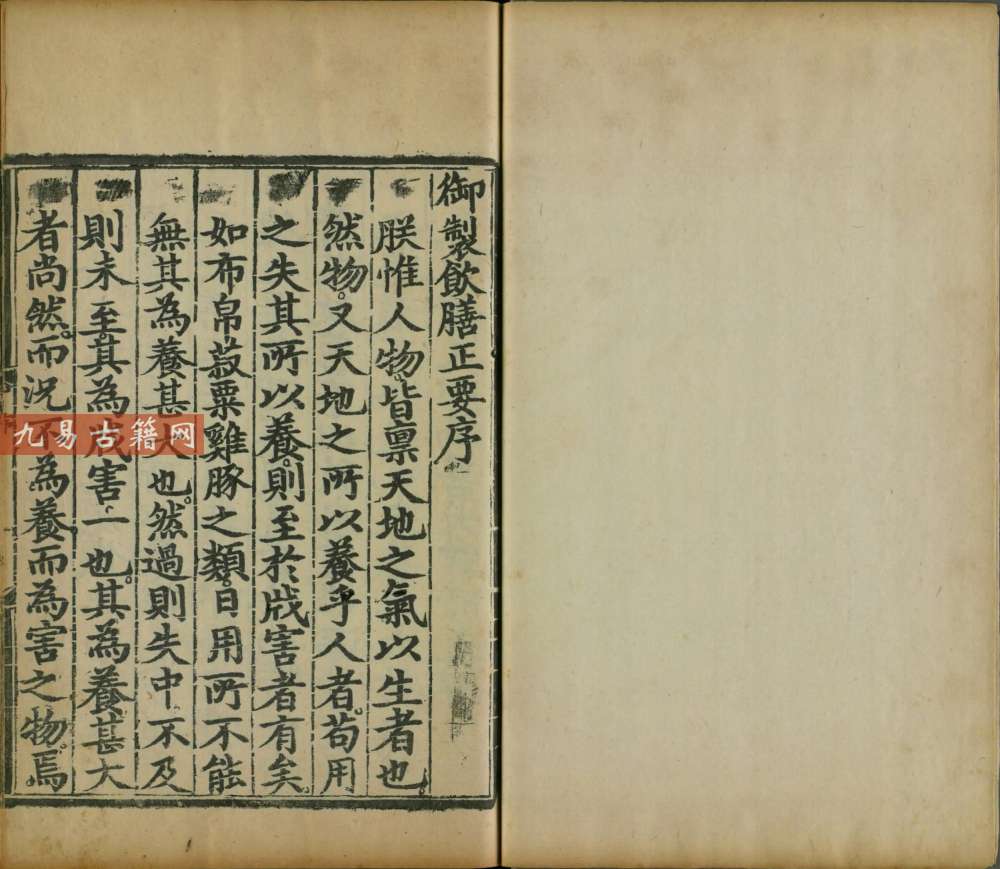 御製飲膳正要序
朕惟人物。皆禀天地之氣以生者也。
然物。又天地之所以養乎人者。苟用
之失其所以養。則至於戕害者有矣。
如布帛菽粟雞豚之類。日用所不能
無其為養甚大也。然過則失中不及
則未至。其為戕害一也。其為養甚大
者尚然。而況不為養而為害之物。焉
九易古籍网